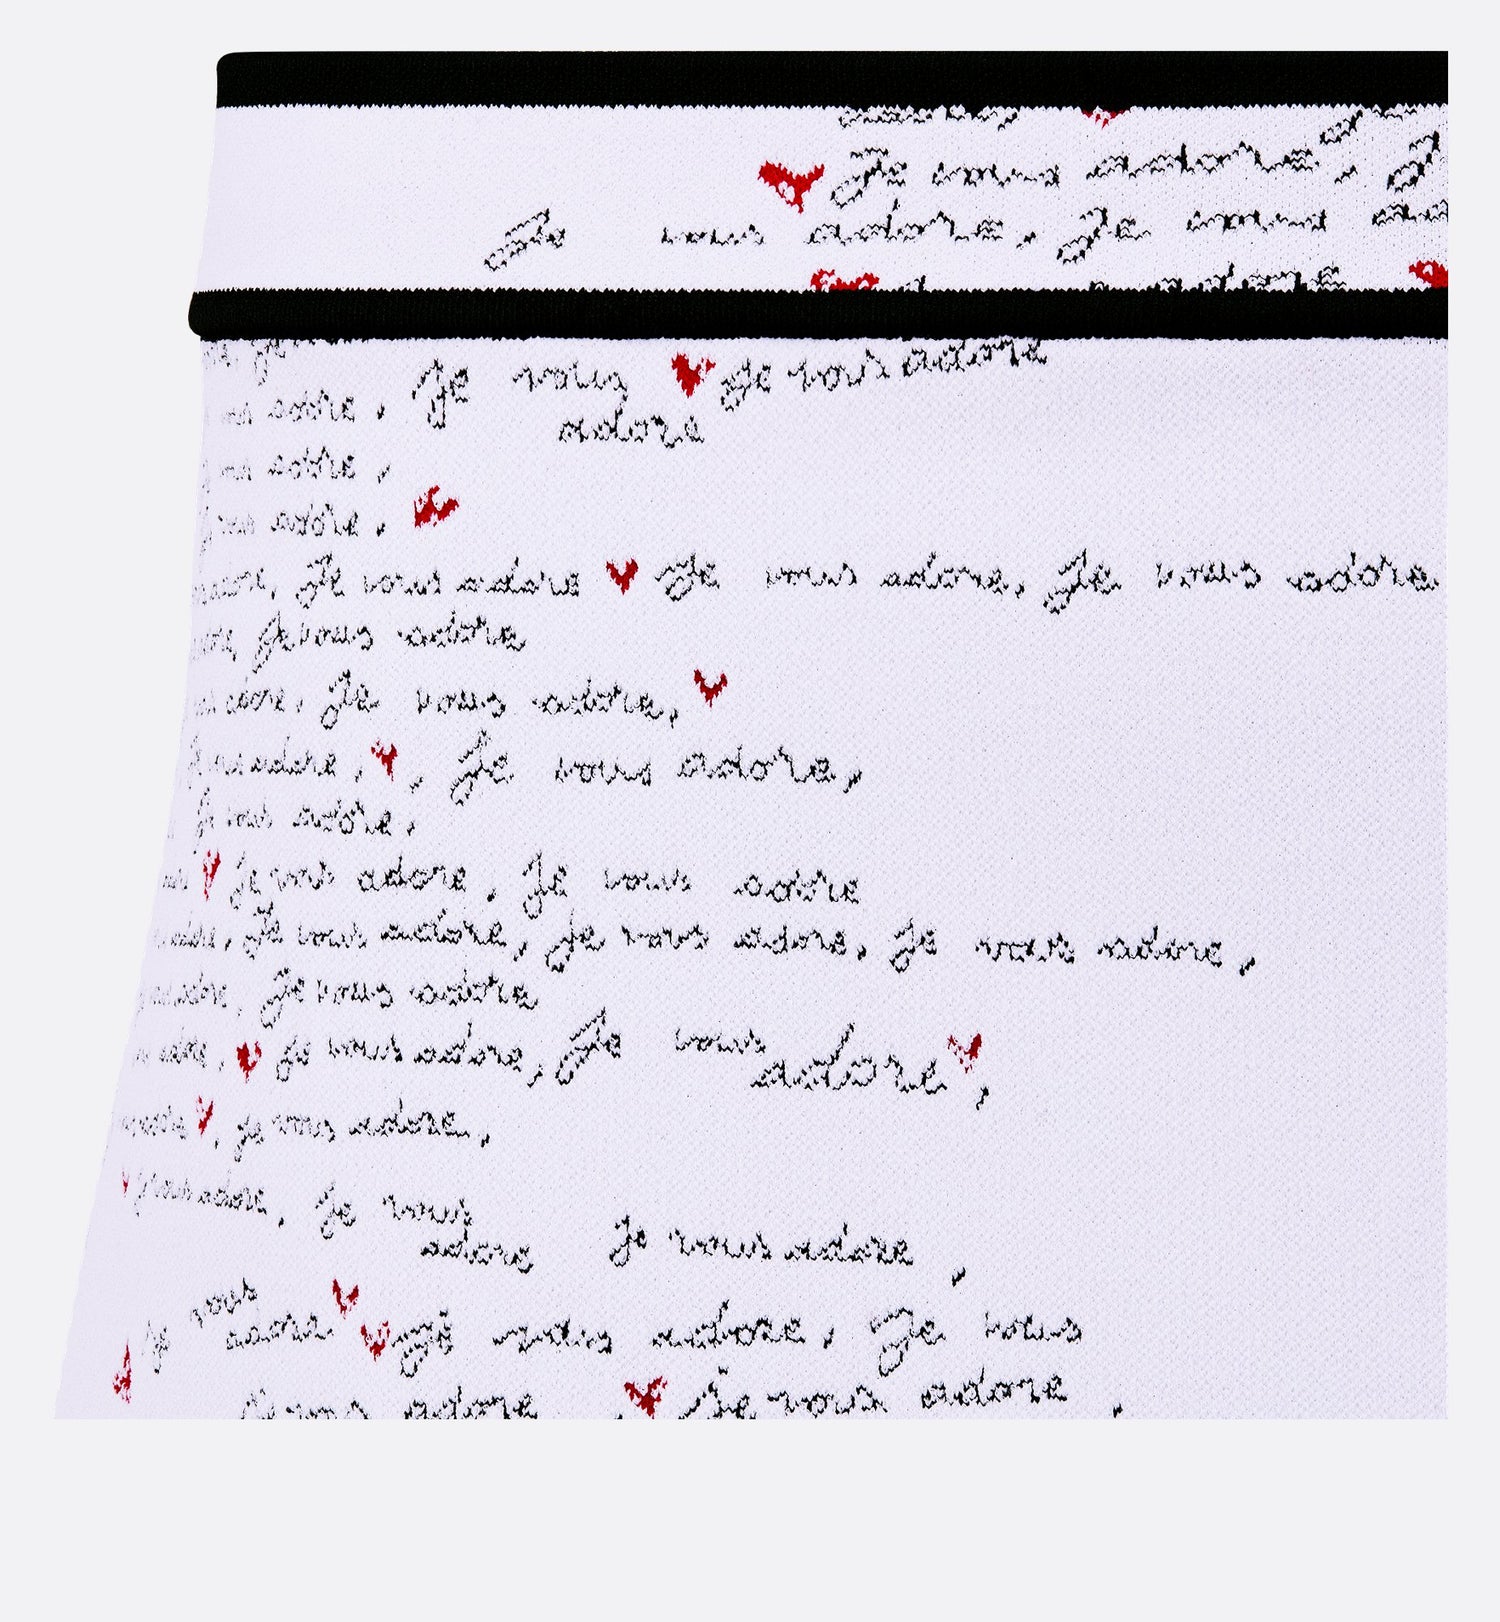 Je vous adore, J
Je vous adore, Je vous ad
adore, Je vous Je vous adore
adore
adore,
adore,
Je vous adore Je vous adore, Je vous adore
Je vous adore
adore, Je vous adore,
adore, Je vous adore,
Je vous adore,
Je vous adore, Je vous adore
Je vous adore, Je vous adore, Je vous adore,
Je vous adore
Je vous adore, Je vous adore,
je vous adore,
Je vous adore, Je vous
adore Je vous adore,
Je vous
adore Je vous adore, Je vous
Je vous adore Je vous adore,